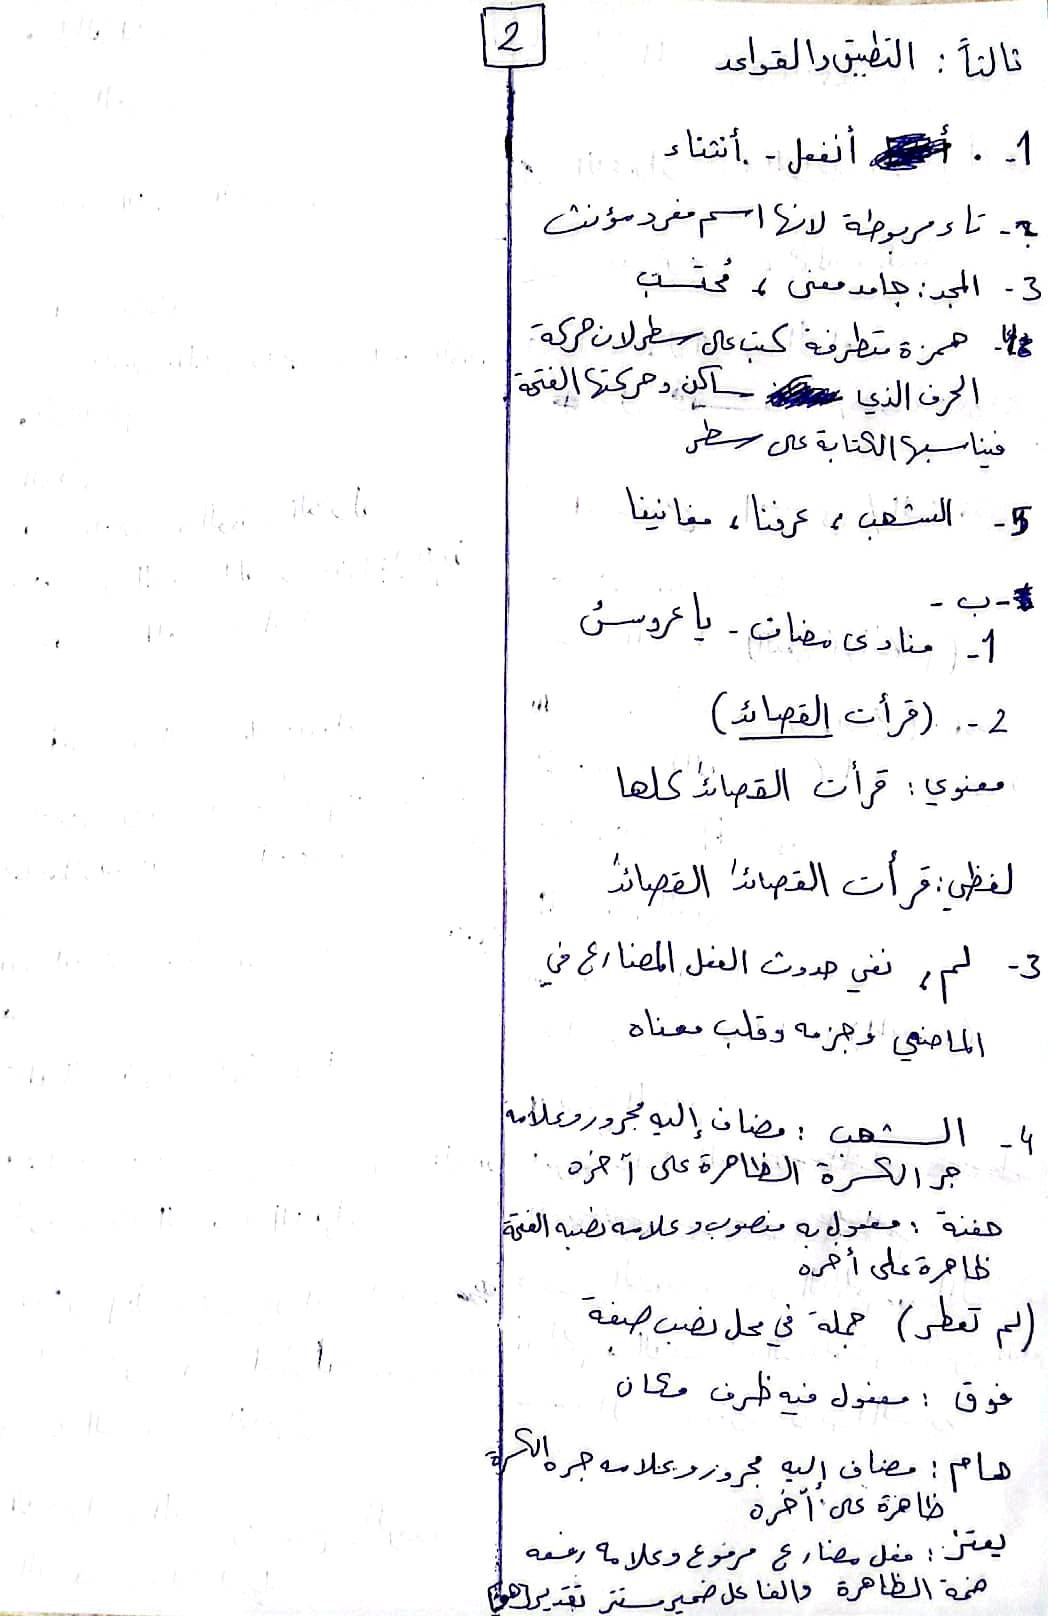 2
ثالثاً : التطبيق والقواعد
1- . أنفعل - أنثناء
2- تاء مربوطة لانها اسم مفرد مؤنث
3- المجد : جامد معنى ، مُحتسب
4- همزة متطرفة كتبت على سطر لان حركة
الحرف الذي ساكن وحركتها الفتحة
فيناسبها الكتابة على سطر
5- الشهب ، عرفنا ، مغانيفا
- ب -
1- منادى مضاف - يا عروسُ
2- (قرأت القصائد)
معنوي : قرأت القصائدَ كلها
لفظي : قرأت القصائدَ القصائدَ
3- لم ، نفي حدوث الفعل المضارع في
الماضي وجزمه وقلب معناه
4- الشهب : مضاف إليه مجرور وعلامة
جر الكسرة الظاهرة على آخره
هفنة : مفعول به منصوب وعلامه نصبه الفتحة
ظاهرة على أخره
(لم تعطر) جملة في محل نصب صفة
فوق : مفعول فيه ظرف مكان
هام : مضاف إليه مجرور وعلامه جره الكسرة
ظاهرة على آخره
يعتز : فعل مضارع مرفوع وعلامه رفعه
ضمة الظاهرة والفاعل ضمير مستتر تقديره (هو)